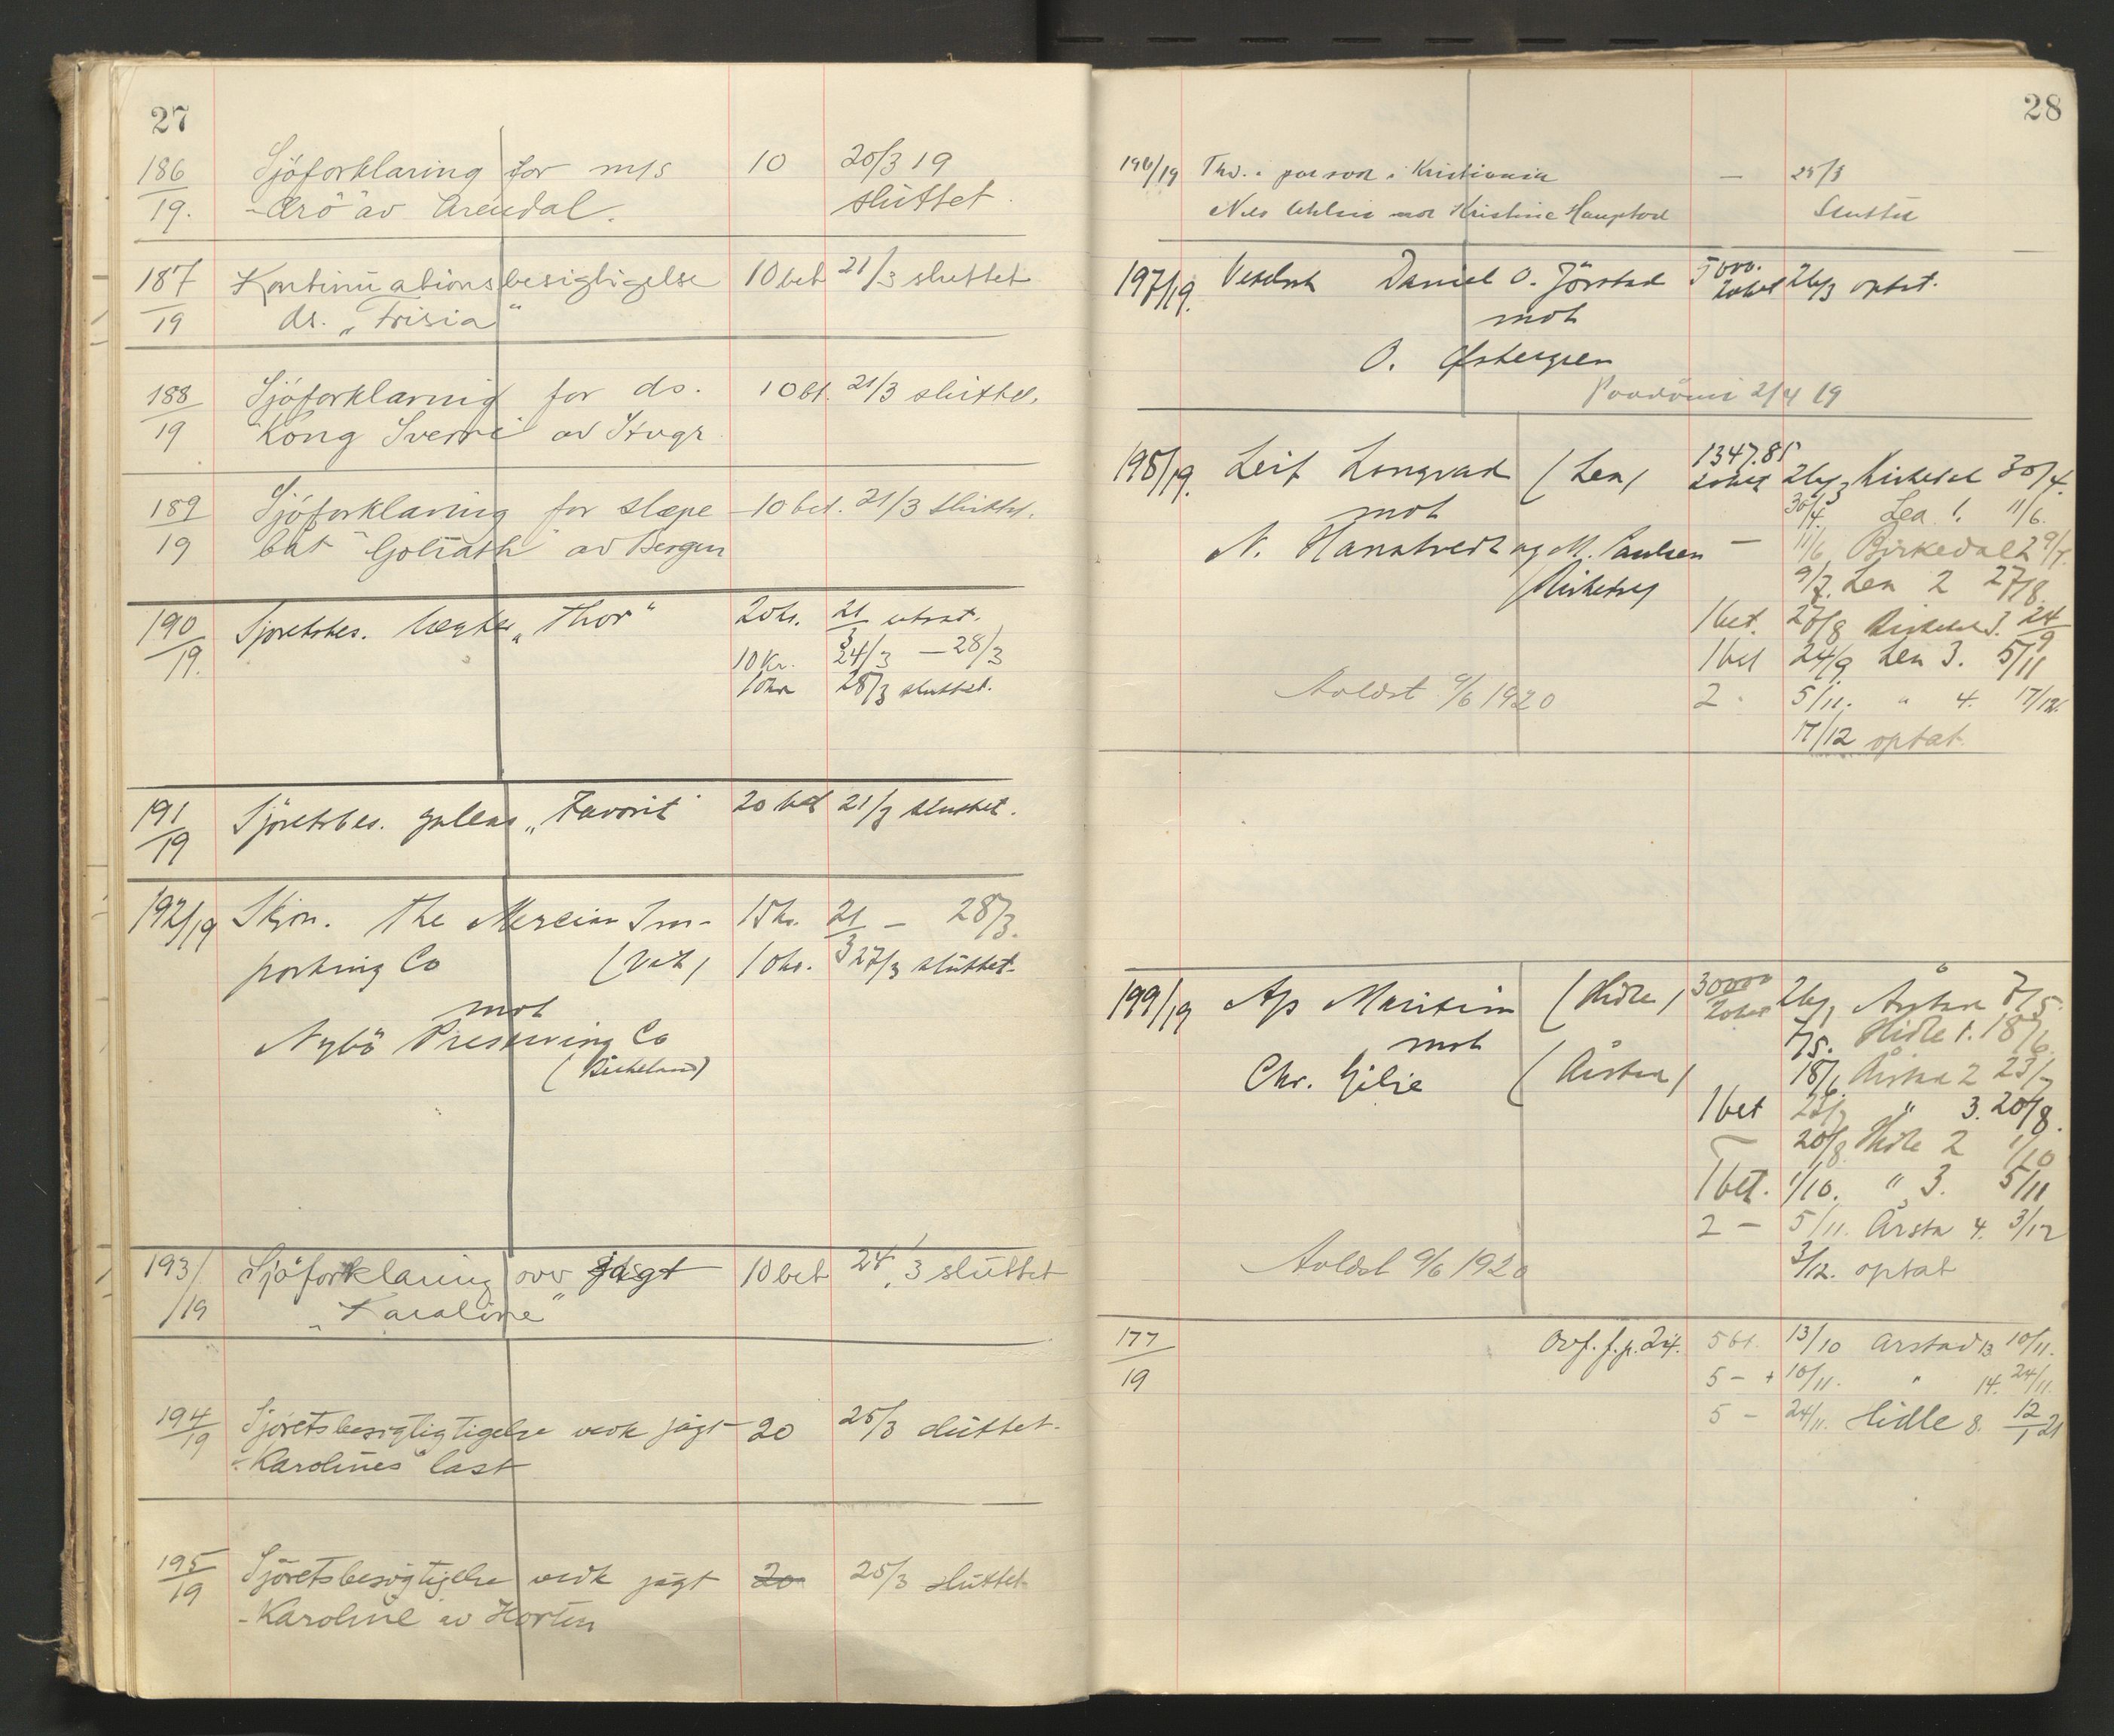 27
186/19. Sjöforklaring for m/s 10 20/3 19
"Ærö" av Arendal. sluttet.
187/19 Kontinuationsbesigtigelse 10 bet 21/3 sluttet
ds. "Frisia"
188/19 Sjöforklaring for ds. 10 bt. 21/3 sluttet.
"Kong Sverre" av
189/19 Sjöforklaring for slæpe- 10 bet. 21/3 sluttet.
båt "Goliath" av Bergen
190/19. Sjøretsbes. lægter "Thor" 20 kr. 21/3 utsat.
10 kr. 24/3 — 28/3
10 kr 28/3 sluttet.
191/19 Sjöretsbes. galeas "Favorit" 20 bet 21/3 sluttet.
192/19 Skjøn. The Mercim Im- 15 kr. 21/3 — 28/3.
porting Co 10 kr. 27/3 sluttet
mot
Nybö Preserving Co
193/19 Sjöforklaring over jagt 10 bet 24/3 sluttet
"Karoline"
194/19 Sjöretsbesigtigtigelse vedk jagt 20 25/3 sluttet.
"Karolines" last
195/19 Sjöretsbesigtigelse vedk jagt 20 25/3 sluttet
"Karoline" av Horten
28
196/19 i Kristiania —
mot Kristine
197/19. Vekselsak Daniel O. Jörstad 5000. 20 bet 26/3 optat.
mot
O. Østergren
2/4 19
198/19. Leif Longvad (Lea) 1347.85 20 bet 26/3 Birkedal 30/4.
mot 30/4. Lea 1. 11/6.
N. Hanatvedt og M. Paulsen — 11/6 Birkedal 2 9/7.
(Birkedal) 9/7. Lea 2 27/8.
1 bet. 27/8 Birkedal 3. 24/9
1 bet 24/9 Lea 3. 5/11
Avldst 9/6 1920 2 - 5/11. " 4. 17/12.
17/12 optat
199/19 A/s Maritim (Hidle) 30000 20 bet 26/3 Årstad 7/5.
mot 7/5. Hidle 1. 18/6.
Chr. Gilje (Årstad) 18/6 Årstad 2 23/7
1 bet 23/7 " 3. 20/8.
— 20/8 Hidle 2 1/10
1 bet. 1/10. " 3. 5/11
2 — 5/11. Årsta 4. 3/12
Avldst 9/6 1920 3/12. optat
177/19 Ovf. f. p. 24. 5 bt. 13/10 Årstad 13 10/11.
5 — + 10/11. " 14. 24/11.
5 — 24/11. Hidle 8. 12/1 21